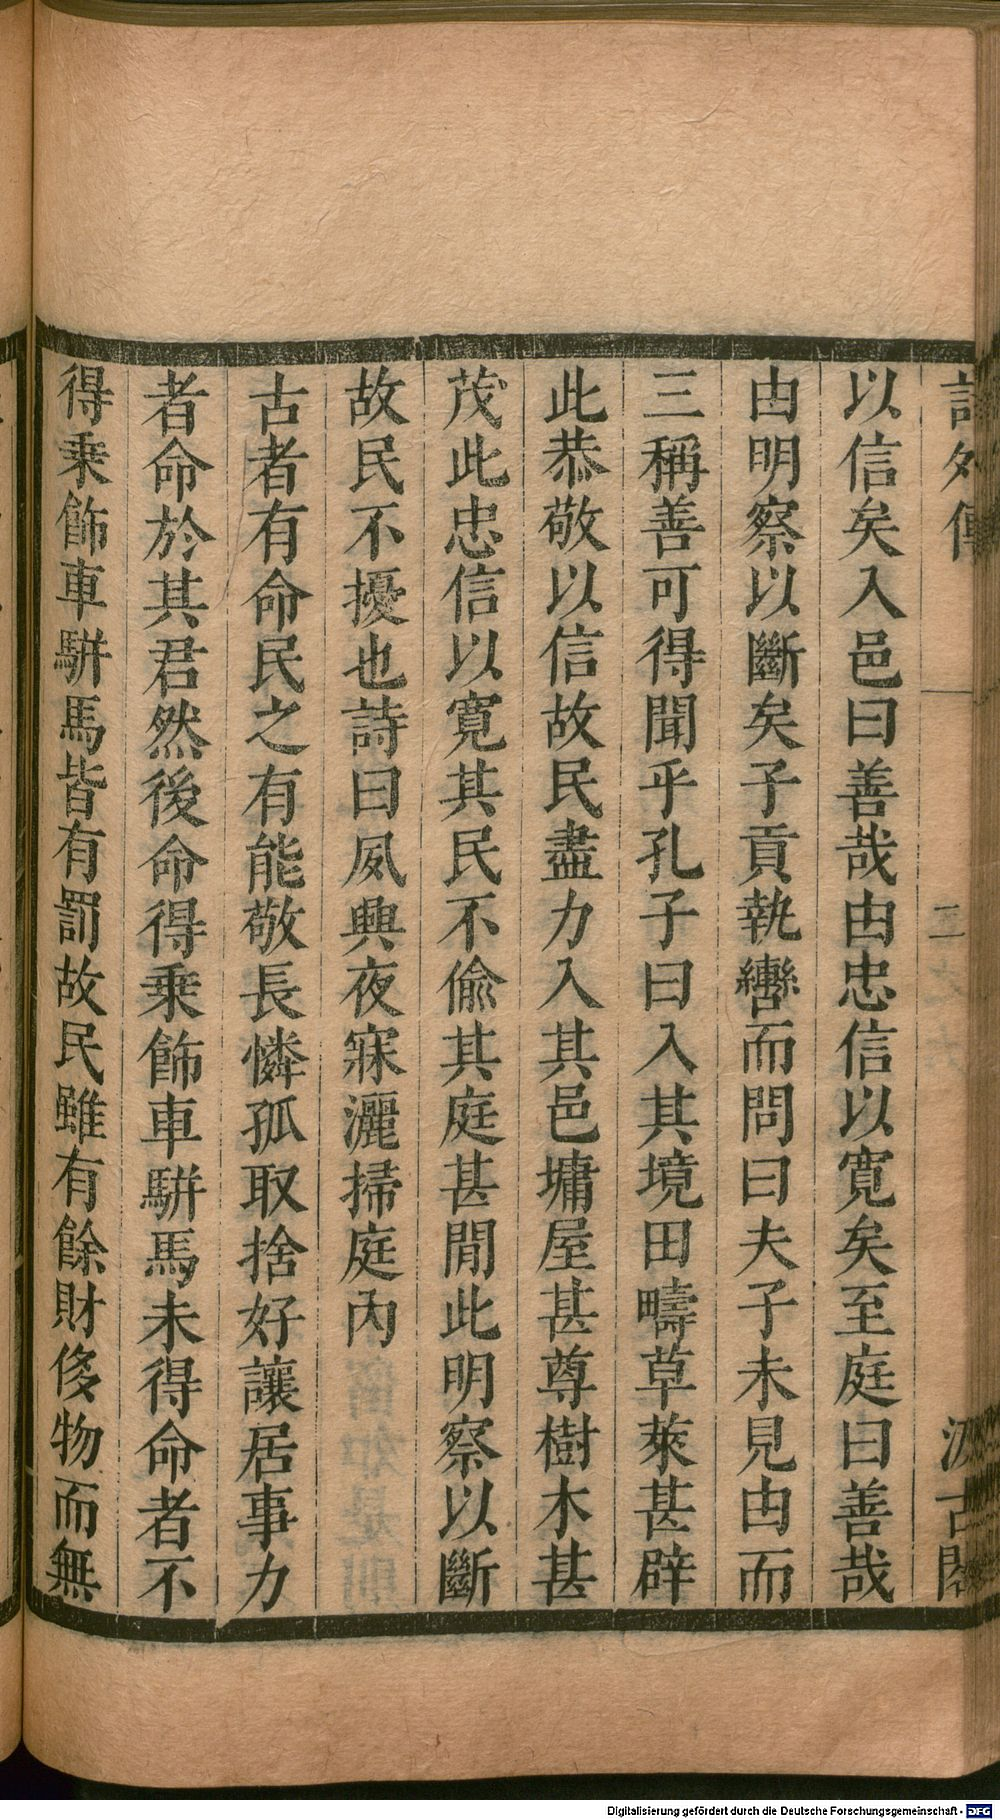 詩外傳
二
汲古閣
以信矣入邑曰善哉由忠信以寬矣至庭曰善哉
由明察以斷矣子貢執轡而問曰夫子未見由而
三稱善可得聞乎孔子曰入其境田疇草萊甚辟
此恭敬以信故民盡力入其邑墉屋甚尊樹木甚
茂此忠信以寬其民不偷其庭甚閒此明察以斷
故民不擾也詩曰夙興夜寐灑掃庭內
古者有命民之有能敬長憐孤取捨好讓居事力
者命於其君然後命得乘飾車駢馬未得命者不
得乘飾車駢馬皆有罰故民雖有餘財侈物而無
Digitalisierung gefördert durch die Deutsche Forschungsgemeinschaft - DFG